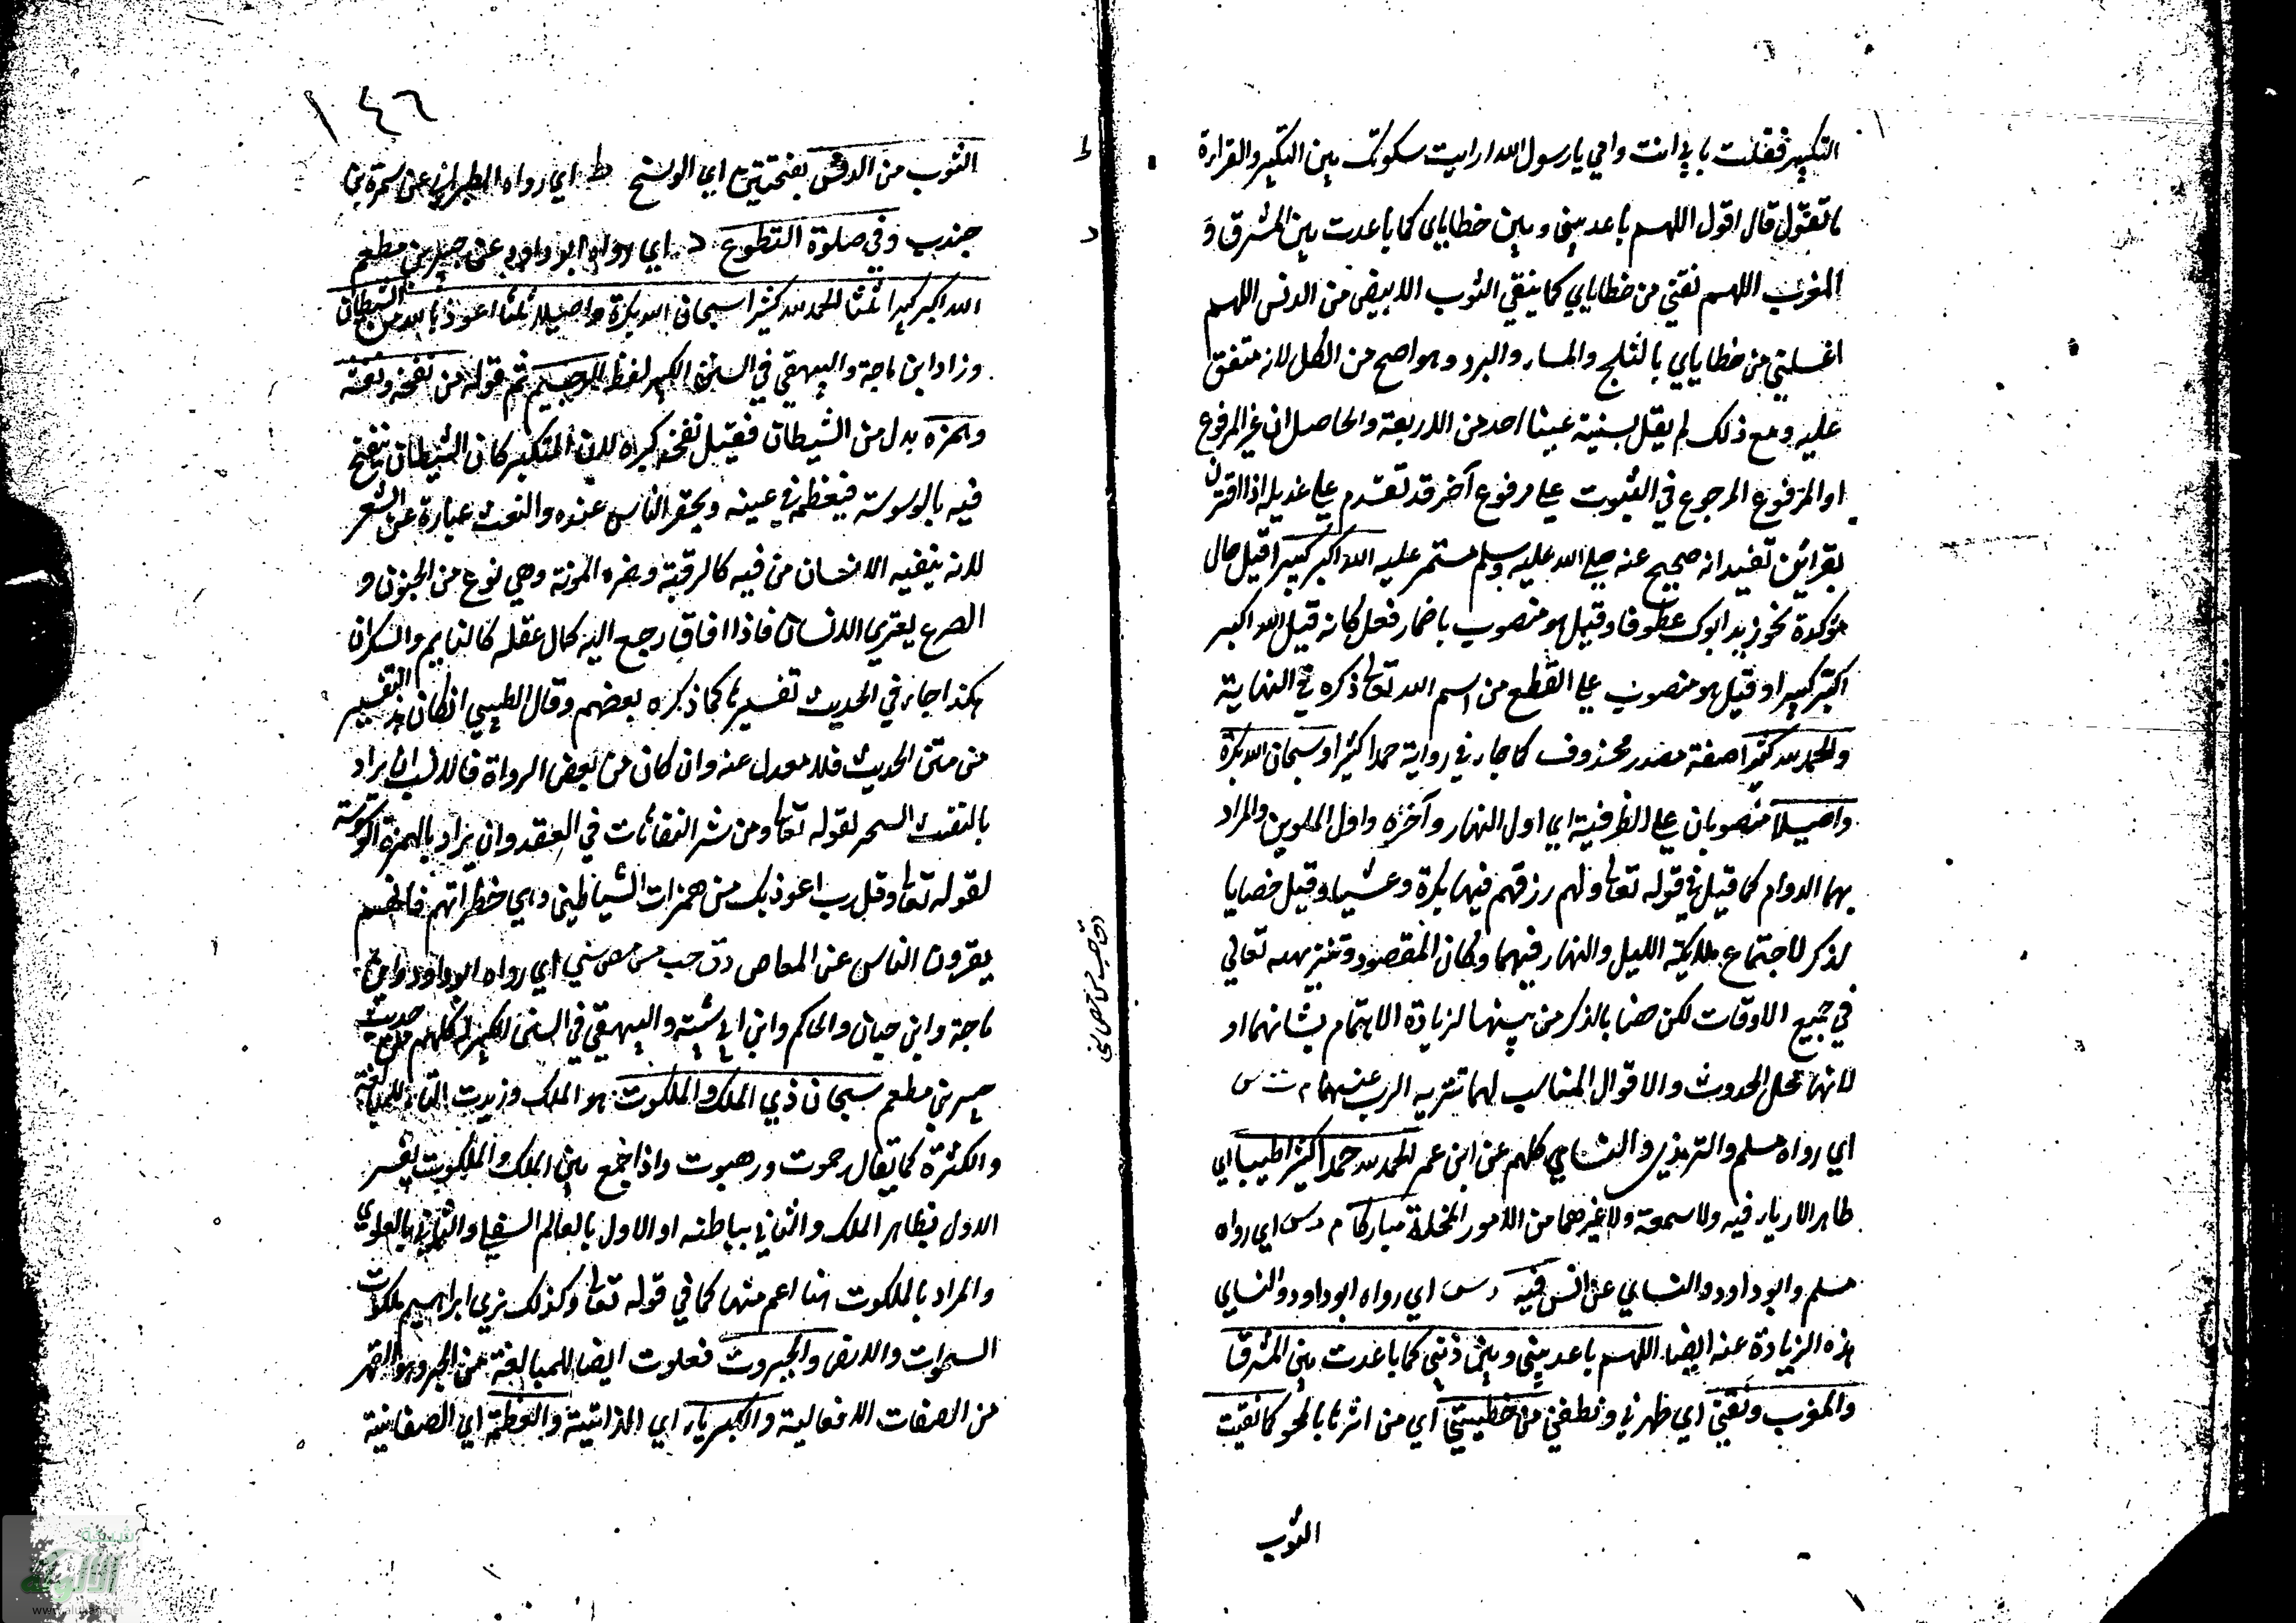 التكبير فقلت بابي انت وامي يا رسول الله ارايت سكوتك بين التكبير والقراءة
ما تقول قال اقول اللهم باعد بيني وبين خطاياي كما باعدت بين المشرق و
المغرب اللهم نقني من خطاياي كما ينقي الثوب الابيض من الدنس اللهم
اغسلني من خطاياي بالثلج والماء والبرد وهو اصح من الكل لانه متفق
عليه ومع ذلك لم يقل بسنية عينا احد من الاربعة والحاصل ان غير المرفوع
او المرفوع المرجوع في الثبوت علي مرفوع آخر قد تقدم علي عديله اذا اقترن
بقرائن تفيد انه صحيح عنه صلي الله عليه وسلم مستمر عليه الله اكبر كبيرا قيل حال
مؤكدة نحو زيد ابوك عطوفا وقيل هو منصوب باضمار فعل كانه قيل الله اكبر
اكبر كبيرا وقيل هو منصوب علي القطع من اسم الله تعالى ذكره في النهاية
والحمد لله كثيرا صفة مصدر محذوف كما جاء في رواية حمدا كثيرا وسبحان الله بكرة
واصيلا منصوبان علي الظرفية اي اول النهار وآخره واول الملوين والمراد
بهما الدوام كما قيل في قوله تعالى ولهم رزقهم فيها بكرة وعشيا وقيل خصا با
لذكر لاجتماع ملايكة الليل والنهار فيهما وكان المقصود وتنزيهه تعالي
في جميع الاوقات لكن خصا بالذكر من بينها لزيادة الاهتمام بشانهما او
لانهما محل الحدوث والاقوال المناسب لهما تنزيه الرب عنهما م ت س
اي رواه مسلم والترمذي والنسايي كلهم عن ابن عمر الحمد لله حمدا كثيرا طيبا اي
طاهرا لا رياء فيه ولا سمعة ولا غيرهما من الامور المخلة مباركا م د س اي رواه
مسلم وابو داود والنسايي عن انس فيه د س اي رواه ابو داود والنسايي
هذه الزيادة عنه ايضا اللهم باعد بيني وبين ذنبي كما باعدت بين المشرق
والمغرب ونقني اي طهرني ونظفني من خطيئتي اي من اثرها بالمحو كما نقيت
الثوب
ط
د
دق حب مس مص ني
١٤٦
الثوب من الدنس بفتحتين اي الوسخ ط اي رواه الطبراني عن سمرة بن
جندب وفي صلوة التطوع د اي رواه ابو داود عن جبير بن مطعم
الله اكبر كبيرا ثلثا الحمد لله كثيرا سبحان الله بكرة واصيلا ثلثا اعوذ بالله من الشيطان
وزاد ابن ماجة والبيهقي في السنن الكبير لفظ الرجيم ثم قوله من نفخه ونفثه
وهمزه بدل من الشيطان فقيل نفخه كبره لان المتكبر كان الشيطان ينفخ
فيه بالوسوسة فيعظمه في عينه ويحقر الناس عنده والنفث عبارة عن الشعر
لانه ينفثه الانسان من فيه كالرقية وهمزه الموتة وهي نوع من الجنون و
الصرع يعتري الانسان فاذا افاق رجع اليه كمال عقله كالنايم والسكران
هكذا جاء في الحديث تفسيرها كما ذكره بعضهم وقال الطيبي ان كان هذا التفسير
من متن الحديث فلا معدل عنه وان كان من بعض الرواة فالانسب ان يراد
بالنفث السحر لقوله تعالى ومن شر النفاثات في العقد وان يراد بالهمزة الوسوسة
لقوله تعالى وقل رب اعوذ بك من همزات الشياطين وهي خطراتهم فانهم
يغرون الناس عن المعاصي دق حب مس مص سني اي رواه ابو داود وابن
ماجة وابن حبان والحاكم وابن ابي شيبة والبيهقي في السنن الكبير كلهم من حديث
جبير بن مطعم سبحان ذي الملك والملكوت هو الملك وزيدت التاء للمبالغة
والكثرة كما يقال رحموت ورهبوت واذا جمع بين الملك والملكوت يفسر
الاول بظاهر الملك والثاني بباطنه او الاول بالعالم السفلي والثاني بالعلوي
والمراد بالملكوت هنا اعم منهما كما في قوله تعالى وكذلك نري ابراهيم ملكوت
السموات والارض والجبروت فعلوت ايضا للمبالغة من الجبر وهو القهر
من الصفات الافعالية والكبرياء اي الذاتية والعظمة اي الصفاتية
شبكة
الألوكة
www.alukah.net